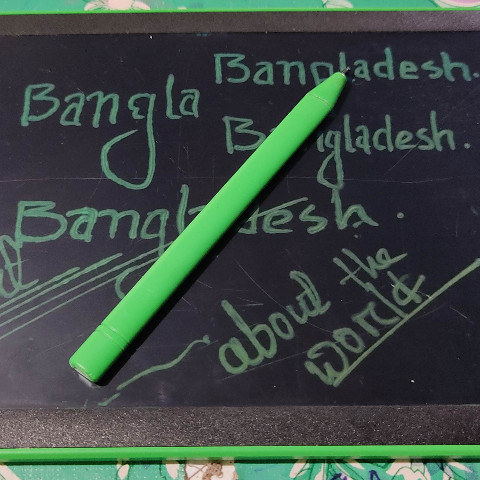 Bangladesh.
Bangla
Bangladesh.
Bangladesh.
about the
world